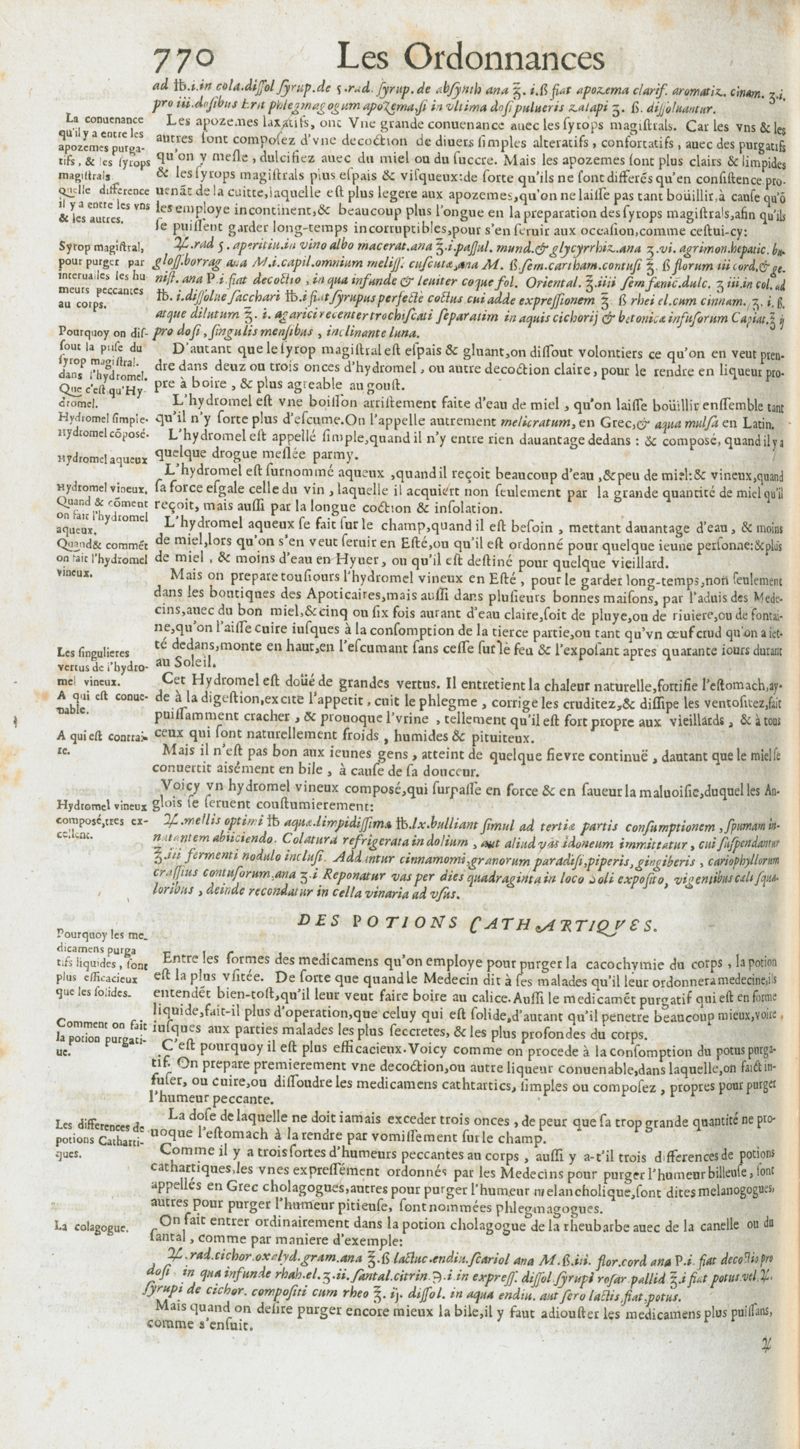 770 Les Ordonnances
ad ℔.i.in cola.dissol syrup.de 5.rad. syrup. de absynth ana ℥. i.ß fiat apozema clarif. aromatiz. cinam. ʒ.i.
pro iii.dosibus Erit phlegmagogum apozema,si in vltima dosi pulueris zalapi ʒ. ß. dissoluantur.
La conuenance
qu'il y a entre les
apozemes purga-
tifs, & les syrops
magistrals
quelle difference
il y a entre les vns
& les autres.
Les apozemes laxatifs, ont Vne grande conuenance auec les syrops magistrals. Car les vns & les
autres sont composez d'vne decoction de diuers simples alteratifs, confortatifs, auec des purgatifs
qu'on y mesle, dulcifiez auec du miel ou du succre. Mais les apozemes sont plus clairs & limpides
& les syrops magistrals plus espais & visqueux:de sorte qu'ils ne sont differés qu'en consistence pro-
uenāt de la cuitte,laquelle est plus legere aux apozemes,qu'on ne laisse pas tant boüillir,à cause qu'ō
les employe incontinent,& beaucoup plus longue en la preparation des syrops magistrals,afin qu'ils
se puissent garder long-temps incorruptibles,pour s'en seruir aux occasion,comme cestui-cy:
Syrop magistral,
pour purger par
interualles les hu
meurs peccantes
au corps.
♃.rad 5. aperitiu.in vino albo macerat.ana ℥.i.passul. mund.& glycyrrhiz.ana ʒ.vi. agrimon.hepatic. bu-
gloss.borrag ana M.i.capil.omnium meliss. cuscuta,ana M. ß.sem.cartham.contusi ℥. ß florum iii cord,& ge-
nist. ana P.i.fiat decoctio, in qua infunde & leuiter coque fol. Oriental. ℥.iiii sem fœnic.dulc. ʒ iii.in col. ad
℔. i.dissolue sacchari ℔.i fiat syrupus perfectè coctus cui adde expressionem ℥. ß rhei el.cum cinnam. ʒ. i. ß.
atque dilutum ℥. i. agarici recenter trochiscati separatim in aquis cichorij & betonicæ infusorum Capiat.℥ ij
pro dosi, singulis mensibus, inclinante luna.
Pourquoy on dis-
sout la prise du
syrop magistral.
dans l'hydromel.
Que c'est qu'Hy-
dromel.
D'autant que le syrop magistral est espais & gluant,on dissout volontiers ce qu'on en veut pren-
dre dans deux ou trois onces d'hydromel, ou autre decoction claire, pour le rendre en liqueur pro-
pre à boire, & plus agreable au goust.
L'hydromel est vne boisson artistement faite d'eau de miel, qu'on laisse boüillir enssemble tant
Hydromel simple.
qu'il n'y sorte plus d'escume.On l'appelle autrement melicratum, en Grec,& aqua mulsa en Latin.
Hydromel cōposé.
L'hydromel est appellé simple,quand il n'y entre rien dauantage dedans : & composé, quand il y a
quelque drogue meslée parmy.
Hydromel aqueux
L'hydromel est surnommé aqueux ,quand il reçoit beaucoup d'eau ,& peu de miel:& vineux,quand
Hydromel vineux.
sa force esgale celle du vin, laquelle il acquiert non seulement par la grande quantité de miel qu'il
Quand & cōment
on fait l'hydromel
aqueux.
reçoit, mais aussi par la longue coction & insolation.
L'hydromel aqueux se fait sur le champ,quand il est besoin, mettant dauantage d'eau, & moins
Quand& commēt
on fait l'hydromel
vineux.
de miel,lors qu'on s'en veut seruir en Esté,ou qu'il est ordonné pour quelque ieune personne:& plus
de miel, & moins d'eau en Hyuer, ou qu'il est destiné pour quelque vieillard.
Mais on prepare tousiours l'hydromel vineux en Esté, pour le garder long-temps,non seulement
dans les boutiques des Apoticaires,mais aussi dans plusieurs bonnes maisons, par l'aduis des Mede-
cins,auec du bon miel,& cinq ou six fois autant d'eau claire,soit de pluye,ou de riuiere,ou de fontai-
ne,qu'on laisse cuire iusques à la consomption de la tierce partie,ou tant qu'vn œuf crud qu'on a iet-
té dedans,monte en haut,en l'escumant sans cesse sur le feu & l'exposant apres quarante iours durant
au Soleil.
Les singulieres
vertus de l'hydro-
mel vineux.
A qui est conue-
nable.
A qui est contrai-
re.
Cet Hydromel est doüé de grandes vertus. Il entretient la chaleur naturelle,fortifie l'estomach,ay-
de à la digestion,excite l'appetit, cuit le phlegme, corrige les cruditez,& dissipe les ventositez,fait
puissamment cracher, & prouoque l'vrine, tellement qu'il est fort propre aux vieillards, & à tous
ceux qui sont naturellement froids, humides & pituiteux.
Mais il n'est pas bon aux ieunes gens, atteint de quelque fievre continuë, dautant que le miel se
conuertit aisément en bile, à cause de sa douceur.
Voicy vn hydromel vineux composé,qui surpasse en force & en saueur la maluoisie,duquel les An-
Hydromel vineux
composé,tres ex-
cellent.
glois se seruent coustumierement:
♃.mellis optimi ℔ aquæ.limpidissimæ ℔.lx.bulliant simul ad tertiæ partis consumptionem, spumam in-
natantem abiiciendo. Colatura refrigerata in dolium, aut aliud vas idoneum immittatur, cui suspendantur
℥.iii fermenti nodulo inclusi. Addantur cinnamomi,granorum paradisi,piperis,gingiberis, cariophyllorum
crassius contusorum.ana ʒ.i Reponatur vas per dies quadraginta in loco Soli exposito, vigentibus cœli squa-
loribus, deinde recondatur in cella vinaria ad vsus.
DES POTIONS CATHARTIQVES.
Pourquoy les me-
dicamens purga
tifs liquides, sont
plus efficacieux
que les solides.
Entre les formes des medicamens qu'on employe pour purger la cacochymie du corps, la potion
est la plus vsitée. De sorte que quand le Medecin dit à ses malades qu'il leur ordonnera medecine,ils
entendēt bien-tost,qu'il leur veut faire boire au calice.Aussi le medicamēt purgatif qui est en forme
liquide,fait-il plus d'operation,que celuy qui est solide,d'autant qu'il penetre beaucoup mieux,voire,
iusques aux parties malades les plus seccretes, & les plus profondes du corps.
Comment on fait
la potion purgati-
ue.
C'est pourquoy il est plus efficacieux.Voicy comme on procede à la consomption du potus purga-
tif. On prepare premierement vne decoction,ou autre liqueur conuenable,dans laquelle,on faict in-
fuser, ou cuire,ou dissoudre les medicamens cathartics, simples ou composez, propres pour purger
l'humeur peccante.
Les differences de
potions Catharti-
ques.
La dose de laquelle ne doit iamais exceder trois onces, de peur que sa trop grande quantité ne pro-
uoque l'estomach à la rendre par vomissement sur le champ.
Comme il y a trois sortes d'humeurs peccantes au corps, aussi y a-t'il trois differences de potions
cathartiques,les vnes expressément ordonnés par les Medecins pour purger l'humeur billeuse, sont
appellés en Grec cholagogues,autres pour purger l'humeur melancholique,sont dites melanogogues,
autres pour purger l'humeur pitieuse, sont nommées phlegmagogues.
La colagogue.
On fait entrer ordinairement dans la potion cholagogue de la rheubarbe auec de la canelle ou du
santal, comme par maniere d'exemple:
♃.rad.cichor.oxalyd.gram.ana ℥.ß lactuc.endiu.scariol ana M.ß.iii. flor.cord ana P.i. fiat decoctio pro
dosi in qua infunde rhab.el.ʒ.ii.santal.citrin.℈.i in express. dissol.syrupi rosar pallid ℥.i fiat potus.vel.♃.
syrupi de cichor. compositi cum rheo ℥. ij. dissol. in aqua endiu. aut sero lactis,fiat.potus.
Mais quand on desire purger encore mieux la bile,il y faut adiouster les medicamens plus puissans,
comme s'ensuit.
♃